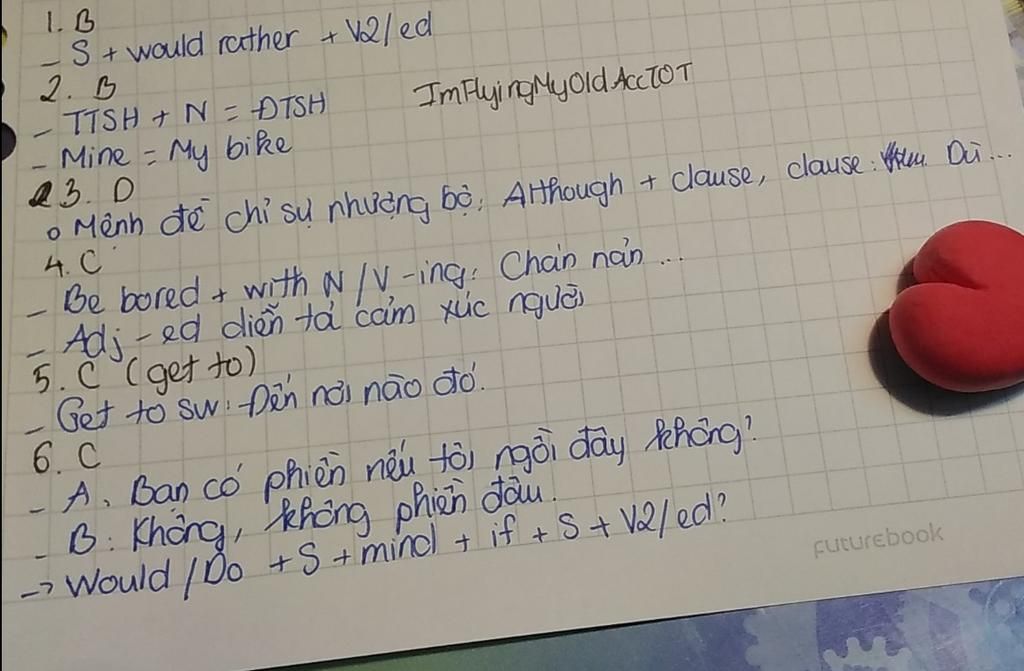 1. B
- S + would rather + V2/ed
2. B
ImFlyingMyOldAccTOT
- TTSH + N = ĐTSH
- Mine = My bike
3. D
o Mệnh đề chỉ sự nhường bộ: Although + clause, clause: Dù...
4. C
- Be bored + with N/V-ing: Chán nản ...
- Adj-ed diễn tả cảm xúc người
5. C (get to)
- Get to sw: Đến nơi nào đó.
6. C
- A. Bạn có phiền nếu tôi ngồi đây không?
- B: Không, không phiền đâu.
-> Would/Do + S + mind + if + S + V2/ed?
FUTUREBOOK